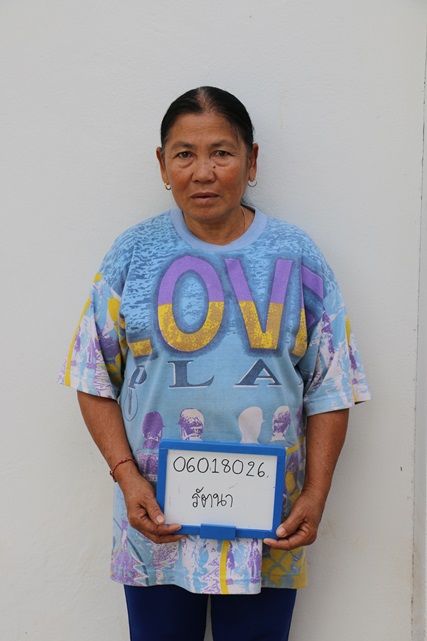 LOVE
PLA
06018026.
รัตนา